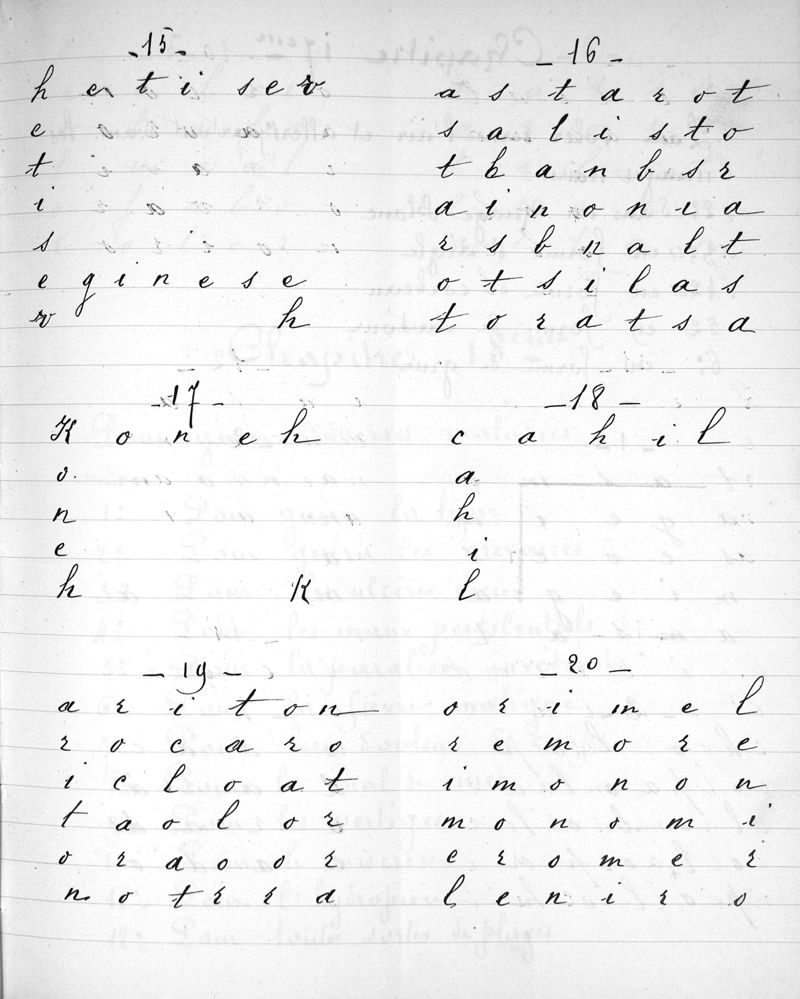 -15-
h e t i s e r
e
t
i
s
e g i n e s e
r h
-16-
a s t a r o t
s a l i s t o
t b a n b s r
a i n o n i a
r s b n a l t
o t s i l a s
t o r a t s a
-17-
K o n e h
o.
n
e
h K
-18-
c a h i l
a
h
i
l
-19-
a r i t o n
r o c a r o
i c l o a t
t a o l o r
o r a o o r
n o t r r a
-20-
o r i m e l
r e m o r e
i m o n o n
m o n o m i
e r o m e r
l e n i r s